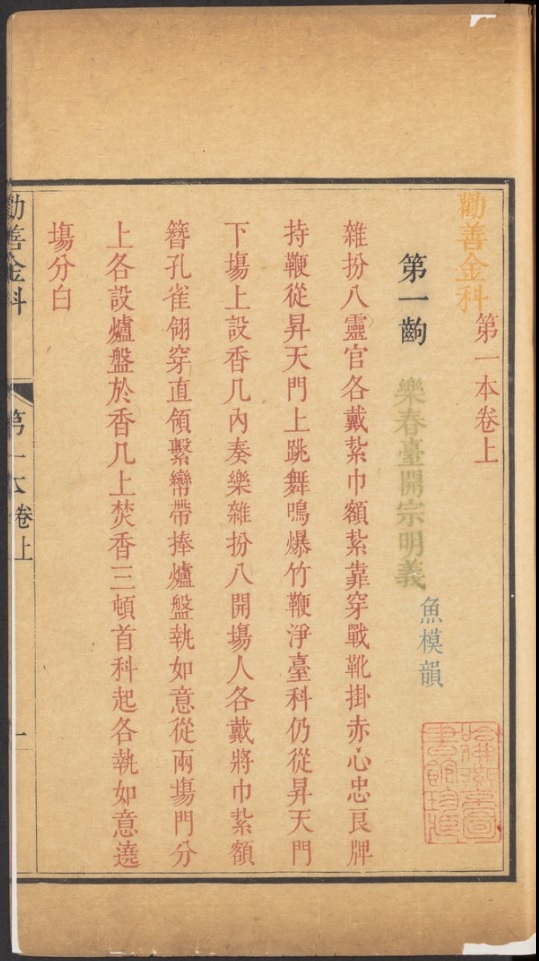 勸善金科
第一本卷上
第一齣
樂春臺開宗明義
魚模韻
雜扮八靈官各戴紮巾額紮靠穿戰靴掛赤心忠良牌
持鞭從昇天門上跳舞鳴爆竹鞭淨臺科仍從昇天門
下塲上設香几內奏樂雜扮八開塲人各戴將巾紮額
簪孔雀翎穿直領繫鸞帶捧爐盤執如意從兩塲門分
上各設爐盤於香几上焚香三頓首科起各執如意遶
塲分白
勸善金科
第一本卷上
一
哈佛燕京圖
書館珍藏